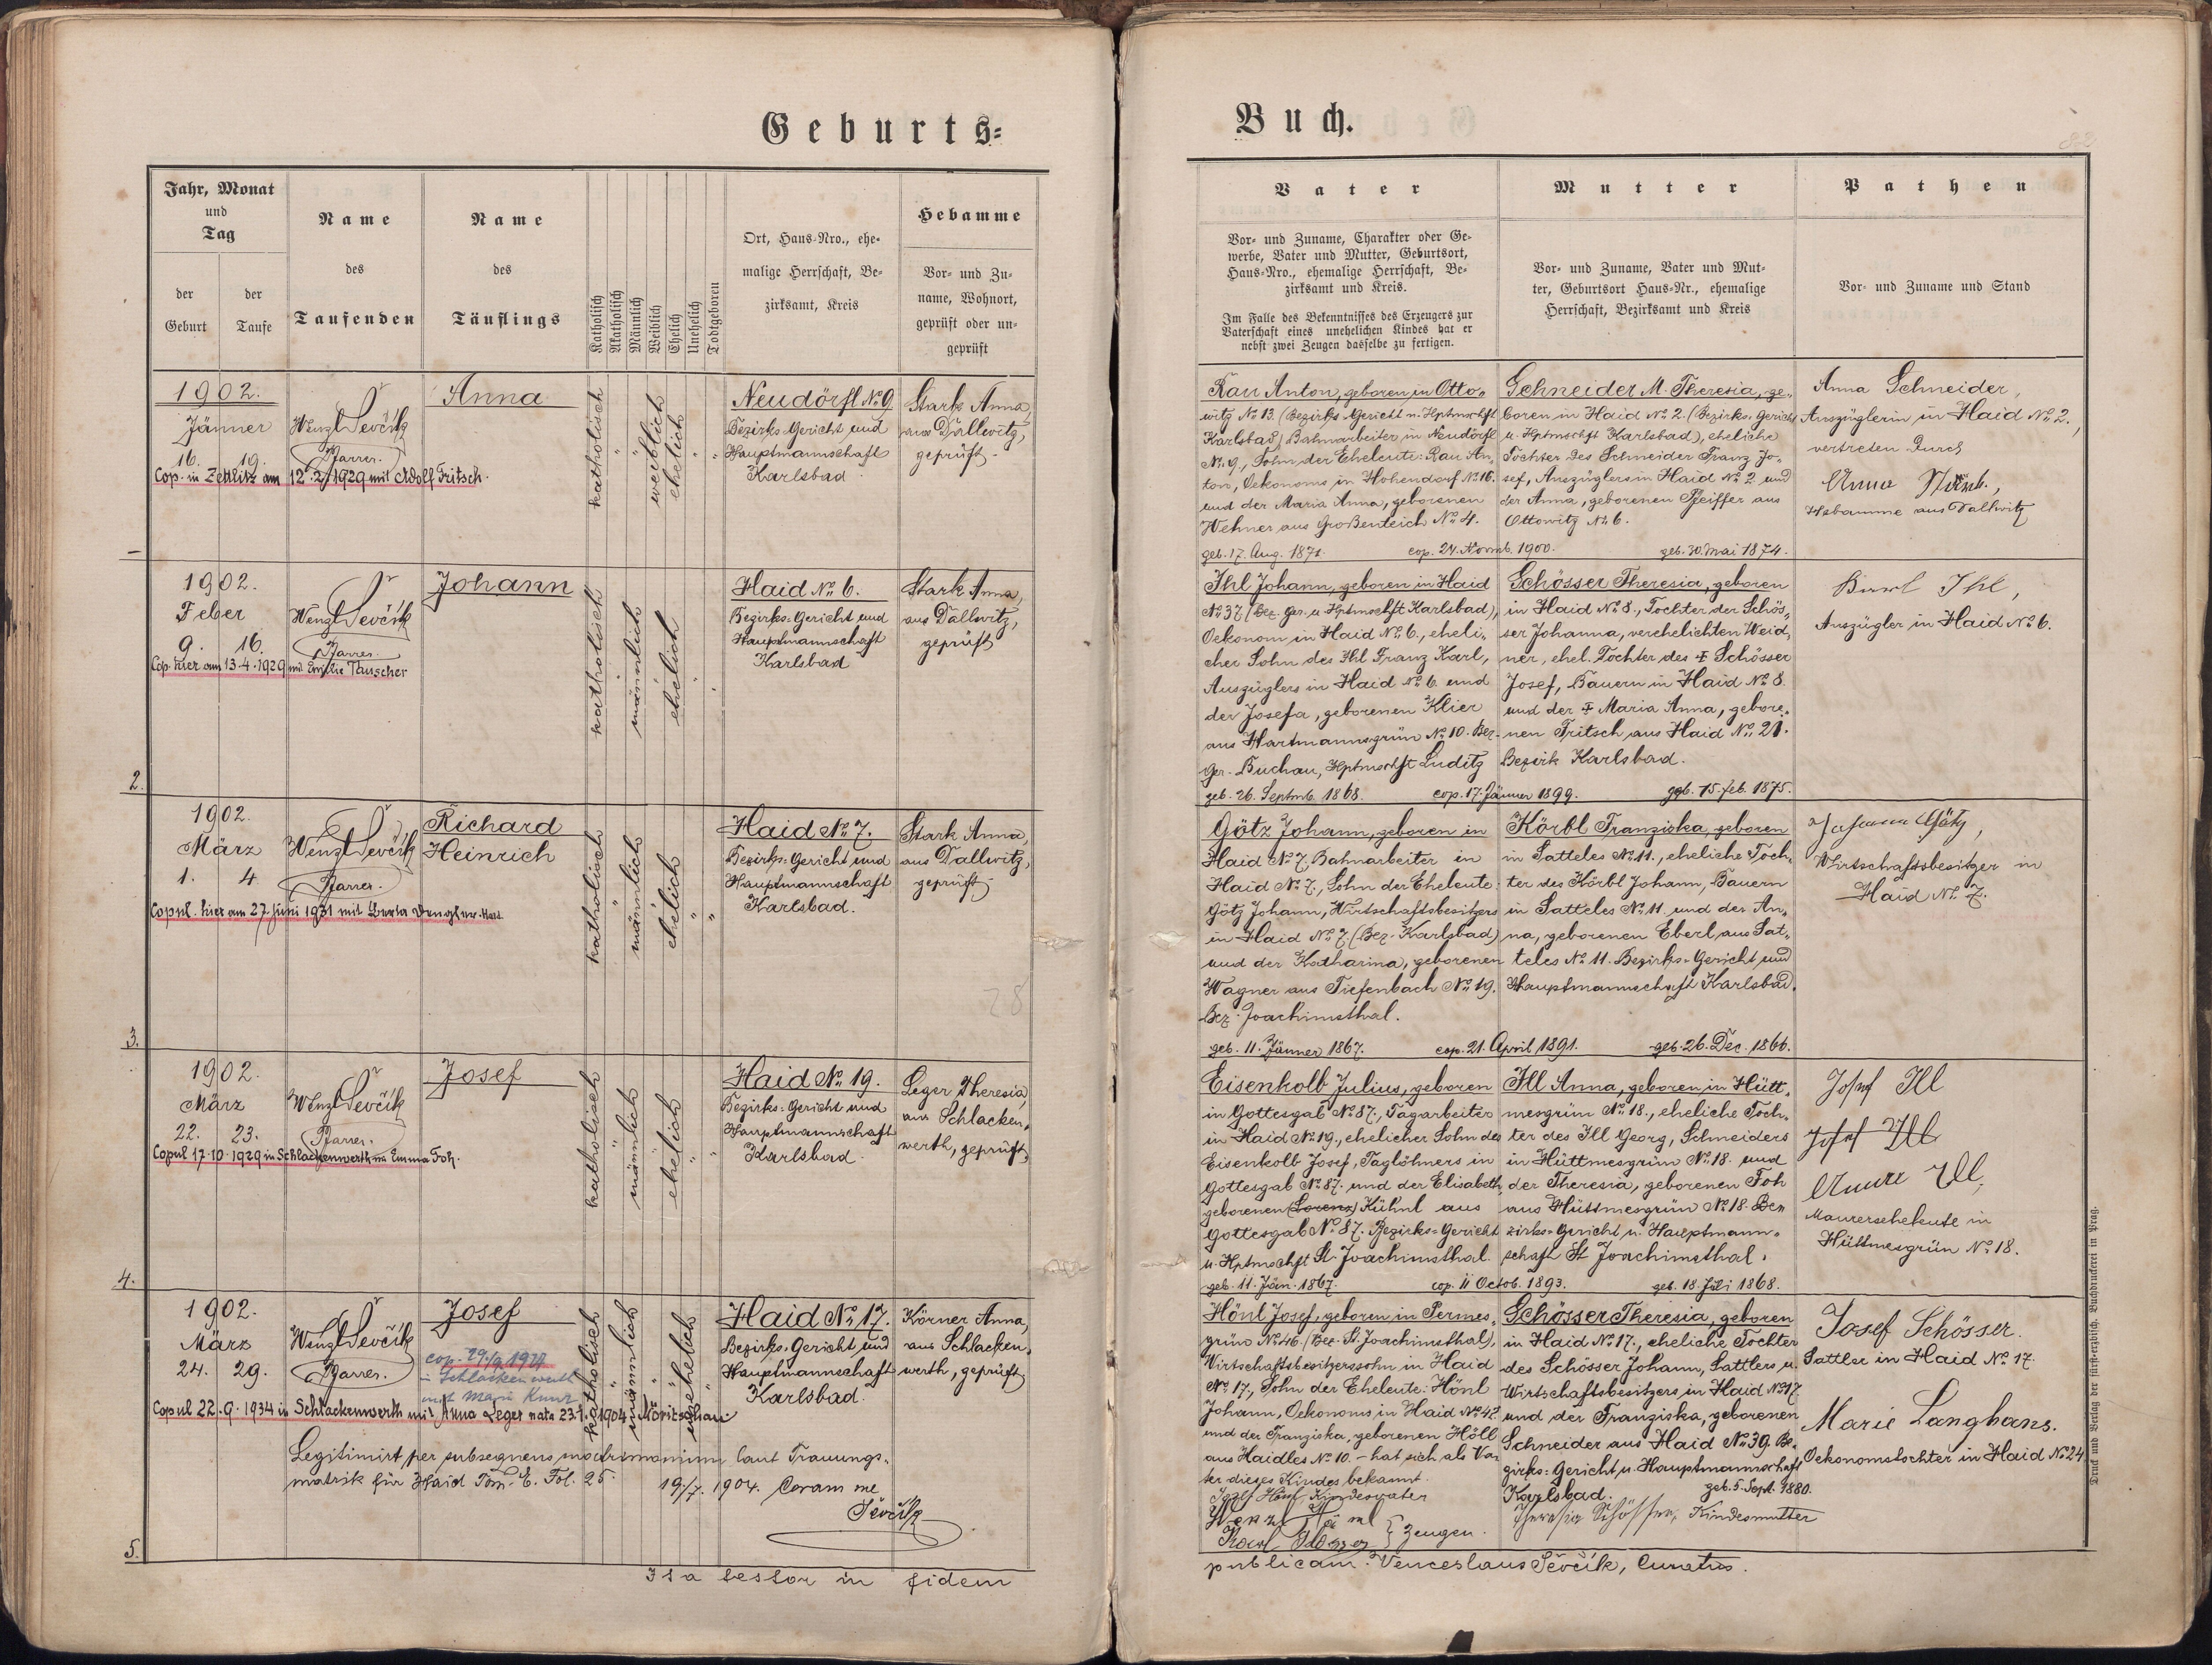 Geburts-
Jahr, Monat
und
Tag
der
Geburt
der
Taufe
Name
des
Taufenden
Name
des
Täuflings
Katholisch
Akatholisch
Männlich
Weiblich
Ehelich
Unehelich
Todtgeboren
Ort, Haus-Nro., ehe-
malige Herrschaft, Be-
zirksamt, Kreis
Hebamme
Vor- und Zu-
name, Wohnort,
geprüft oder un-
geprüft
1902.
Jänner
16. 19.
Wenzl Ševčík
Pfarrer.
Anna
katholisch
weiblich
ehelich
Neudörfl No 9
Bezirks-Gericht und
Hauptmannschaft
Karlsbad
Stark Anna,
aus Dallwitz,
geprüft
Cop. in Zettlitz am 12.2.1929 mit Adolf Fritsch.
2.
1902.
Feber
9. 16.
Wenzl Ševčík
Pfarrer.
Johann
katholisch
männlich
ehelich
Haid No 6.
Bezirks-Gericht und
Hauptmannschaft
Karlsbad
Stark Anna,
aus Dallwitz,
geprüft
Cop. hier am 13.4.1929 mit Emilie Tauscher
3.
1902.
März
1. 4
Wenzl Ševčík
Pfarrer.
Richard
Heinrich
katholisch
männlich
ehelich
Haid No 7.
Bezirks-Gericht und
Hauptmannschaft
Karlsbad.
Stark Anna,
aus Dallwitz,
geprüft
Copul. hier am 27 Juni 1931 mit Berta
28
4.
1902.
März
22. 23.
Wenzl Ševčík
Pfarrer.
Josef
katholisch
männlich
ehelich
Haid No 19.
Bezirks-Gericht und
Hauptmannschaft
Karlsbad
Leger Theresia,
aus Schlacken-
werth, geprüft
Copul 17.10.1929 in Schlackenwerth m. Emma Foh.
5.
1902.
März
24. 29.
Wenzl Ševčík
Pfarrer.
Josef
katholisch
männlich
unehelich
Haid No 17.
Bezirks-Gericht und
Hauptmannschaft
Karlsbad.
Körner Anna,
aus Schlacken-
werth, geprüft
in Schlackenwerth
mit
Copul 22.9.1934 in Schlackenwerth mit Anna Leger nata 1904
Legitimirt per subsequens matrimonium laut Trauungs-
matrik für Haid Tom. E. Fol. 25. 19./7. 1904. Coram me
Ševčík
Ita testor in fidem
Buch.
Vater
Vor- und Zuname, Charakter oder Ge-
werbe, Vater und Mutter, Geburtsort,
Haus-Nro., ehemalige Herrschaft, Be-
zirksamt und Kreis.
Im Falle des Bekenntnisses des Erzeugers zur
Vaterschaft eines unehelichen Kindes hat er
nebst zwei Zeugen dasselbe zu fertigen.
Mutter
Vor- und Zuname, Vater und Mut-
ter, Geburtsort Haus-Nr., ehemalige
Herrschaft, Bezirksamt und Kreis
Pathen
Vor- und Zuname und Stand
Rau Anton, geboren in Otto-
witz No 13. (Bezirks-Gericht u. Hptmschft
Karlsbad) Bahnarbeiter in Neudörfl
No 9., Sohn der Eheleute: Rau An-
ton, Oekonoms in Hohendorf No 16.
und der Maria Anna, geborenen
Wehner aus Großenteich No 4.
geb. 17. Aug. 1871. cop. 24. Novmb. 1900. geb. 30. Mai 1874.
Schneider M. Theresia, ge-
boren in Haid No 2. (Bezirks-Gericht
u. Hptmschft Karlsbad), eheliche
Tochter des Schneider Franz Jo-
sef, Auszüglers in Haid No 2 und
der Anna, geborenen Pfeiffer aus
Ottowitz No 6.
Anna Schneider,
Auszüglerin in Haid No 2.,
vertreten durch
Anna Stark,
Hebamme aus Dallwitz
Ihl Johann, geboren in Haid
No 37. (Bez. Ger. u. Hptmschft Karlsbad),
Oekonom in Haid No 6., eheli-
cher Sohn des Ihl Franz Karl,
Auszüglers in Haid No 6. und
der Josefa, geborenen Klier
aus Hartmannsgrün No 10. Bez.
Ger. Buchau, Hptmschft Luditz
geb. 26. Septmb. 1868. cop. 17. Jänner 1899. geb. 15. Feb. 1875.
Schösser Theresia, geboren
in Haid No 8., Tochter der Schös-
ser Johanna, verehelichten Weid-
ner, ehel. Tochter des Ŧ Schösser
Josef, Bauern in Haid No 8.
und der Ŧ Maria Anna, gebore-
nen Fritsch aus Haid No 21.
Bezirk Karlsbad.
Karl Ihl,
Auszügler in Haid No 6.
Götz Johann, geboren in
Haid No 7, Bahnarbeiter in
Haid No 7., Sohn der Eheleute:
Götz Johann, Wirtschaftsbesitzers
in Haid No 7. (Bez. Karlsbad)
und der Katharina, geborenen
Wagner aus Tiefenbach No 19.
Bez. Joachimsthal.
geb. 11. Jänner 1867. cop. 21. April 1891. geb. 26. Dec. 1866.
Körbl Franziska, geboren
in Satteles No 11., eheliche Toch-
ter des Körbl Johann, Bauern
in Satteles No 11 und der An-
na, geborenen Eberl aus Sat-
teles No 11. Bezirks-Gericht und
Hauptmannschaft Karlsbad.
Johann Götz,
Wirtschaftsbesitzer in
Haid No 7.
Eisenkolb Julius, geboren
in Gottesgab No 87., Tagarbeiter
in Haid No 19., ehelicher Sohn des
Eisenkolb Josef, Taglöhners in
Gottesgab No 87. und der Elisabeth,
geborenen (Lorenz) Kühnl aus
Gottesgab No 87. Bezirks-Gericht
u. Hptmschft St. Joachimsthal.
geb. 11. Jän. 1867. cop. 11 Octob. 1893. geb. 18. Juli 1868.
Ill Anna, geboren in Hütt-
mesgrün No 18., eheliche Toch-
ter des Ill Georg, Schneiders
in Hüttmesgrün No 18. und
der Theresia, geborenen Foh
aus Hüttmesgrün No 18. Be-
zirks-Gericht u. Hauptmann-
schaft St Joachimsthal.
Josef Ill
Josef Ill
Anna Ill,
Maurerseheleute in
Hüttmesgrün No 18.
Hönl Josef, geboren in Permes-
grün No 46 (Bez. St. Joachimsthal),
Wirtschaftsbesitzerssohn in Haid
No 17., Sohn der Eheleute: Hönl
Johann, Oekonoms in Haid No 42.
und der Franziska, geborenen Höll
aus Haidles No 10. – hat sich als Va-
ter dieses Kindes bekannt.
Josef Hönl Kindesvater
Wenzl
Karl } Zeugen.
Schösser Theresia, geboren
in Haid No 17., eheliche Tochter
des Schösser Johann, Sattlers u.
Wirtschaftsbesitzers in Haid No 17
und der Franziska, geborenen
Schneider aus Haid No 39. Be-
zirks-Gericht u. Hauptmannschaft
Karlsbad. geb. 5. Sept. 1880.
Theresia Schösser, Kindesmutter
Josef Schösser.
Sattler in Haid No 17.
Marie Langhans.
Oekonomstochter in Haid No 24
publicam. Venceslaus Ševčík, Curatus.
Druck und Verlag der fürst-erzbisch. Buchdruckerei in Prag.